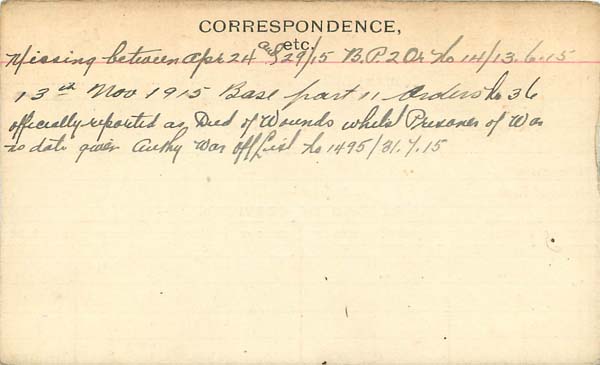 CORRESPONDENCE,
etc.
Missing between Apr 24 and 29/15 B.P.2 Or. No 14/13.6.15
13th Nov 1915 Base part 11 Orders No 36
officially reported as Died of Wounds whilst Prisoner of War
no date given Authy War Off List No 1495/31.7.15